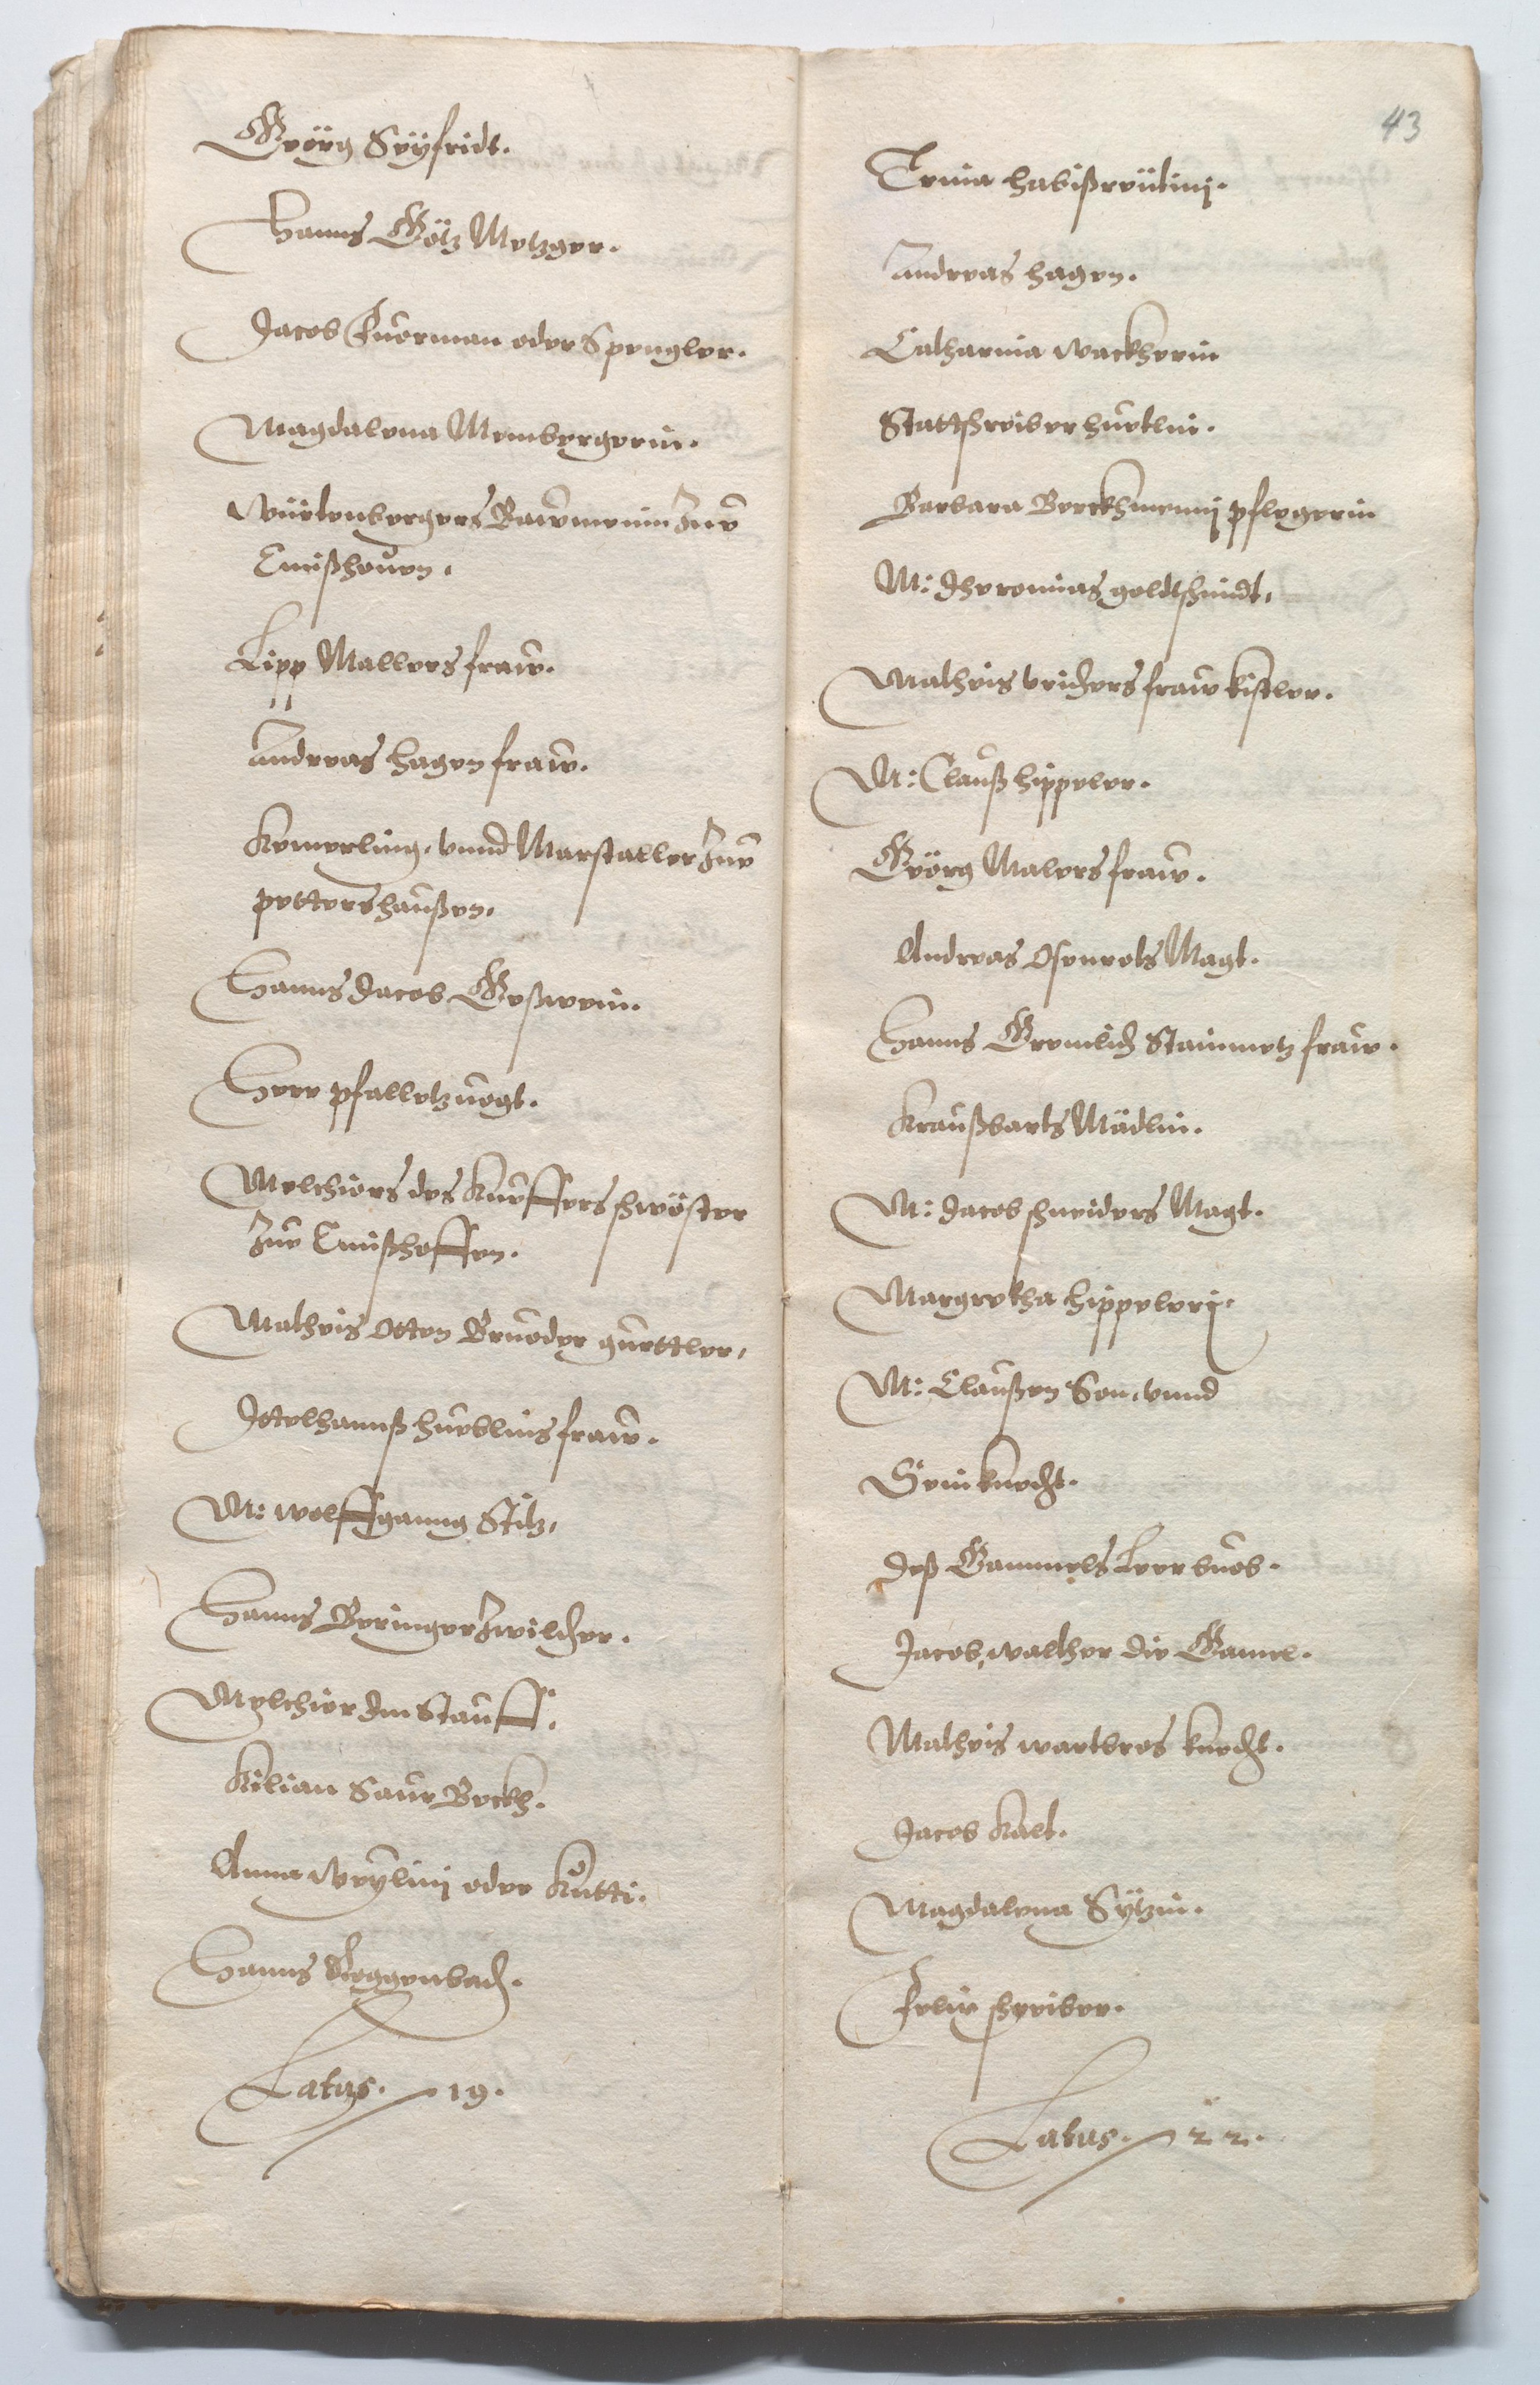 Geörg Seÿfridt.
Hanns Götz Metzger.
Jacob Fuorman oder Spengler.
Magdalena Membergerin.
Würtenbergers Bawmenin Zue
Emißhouen.
Lipp Mallers fraw.
Andreas hagen fraw.
Kemerling. vnnd Marstaller Zue
pettershaußen.
Hanns Jacob Geßwein.
Herr pfalletzuogt.
Melchiors des Kueffers schwöster
Zue Emißhoffen.
Matheis Otten Bruoder guerttler.
Ittelhannß hueblins fraw.
M: wolffganng Stilz.
Hanns Beringer Zwilcher.
Melchior Im Stauff.
Kilian Saur Beckh.
Anna Weÿlinj oder Kutti.
Hanns Roggenbach.
Latus. 19.
43
Trina habißreütinj.
Andreas hagen.
Catharina Wackherin
Stattschreiber huetlin.
Barbara Berckhmennj pflegerin
M: Jheronimas goldtschmidt.
Matheis breichers fraw kistler.
M: Clauß hippeler.
Geörg Malers fraw.
Andreas Osenrets Magt.
Hanns Gremlich Stainmetz fraw.
Kraußbarts Mädlin.
M: Jacob schneiders Magt.
Margretha hippelerj.
M: Claußen Son. vnnd
Sein knecht.
Deß Gammels Leer buob.
Jacob, walther die Gamel.
Matheis warters knecht.
Jacob Kael.
Magdalena Sÿtzin.
Felix schreiber.
Latus. 22.